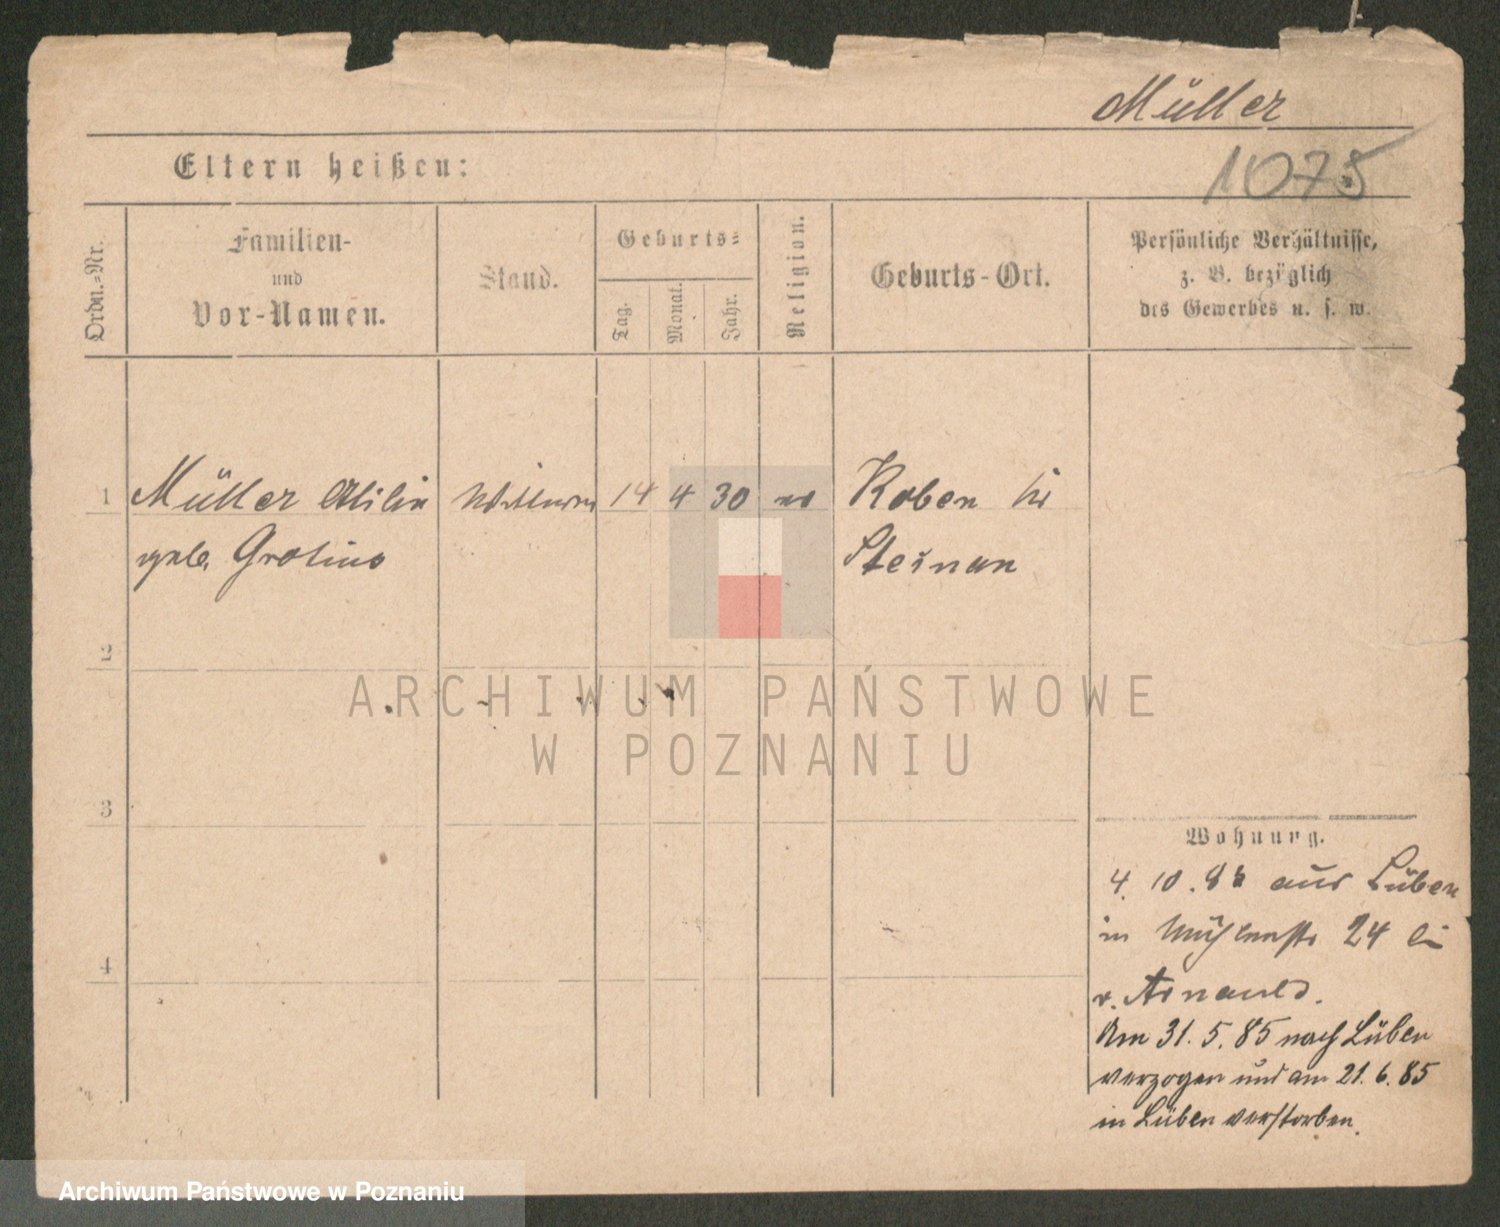 Müller
1075
Eltern heißen:
Ordn.-Nr.
Familien-
und
Vor-Namen.
Stand.
Geburts-
Tag.
Monat.
Jahr.
Religion.
Geburts-Ort.
Persönliche Verhältnisse,
z. B. bezüglich
des Gewerbes u. s. w.
1 Müller 14 4 30 Koben
geb. Grotius Steinau
2
ARCHIWUM PAŃSTWOWE
W POZNANIU
3
Wohnung.
4. 10. aus Lüben
in Mühlenstr 24 bei
v. Arnauld.
4
Am 31. 5. 85 nach Lüben
verzogen und am 21. 6. 85
in Lüben verstorben.
Archiwum Państwowe w Poznaniu